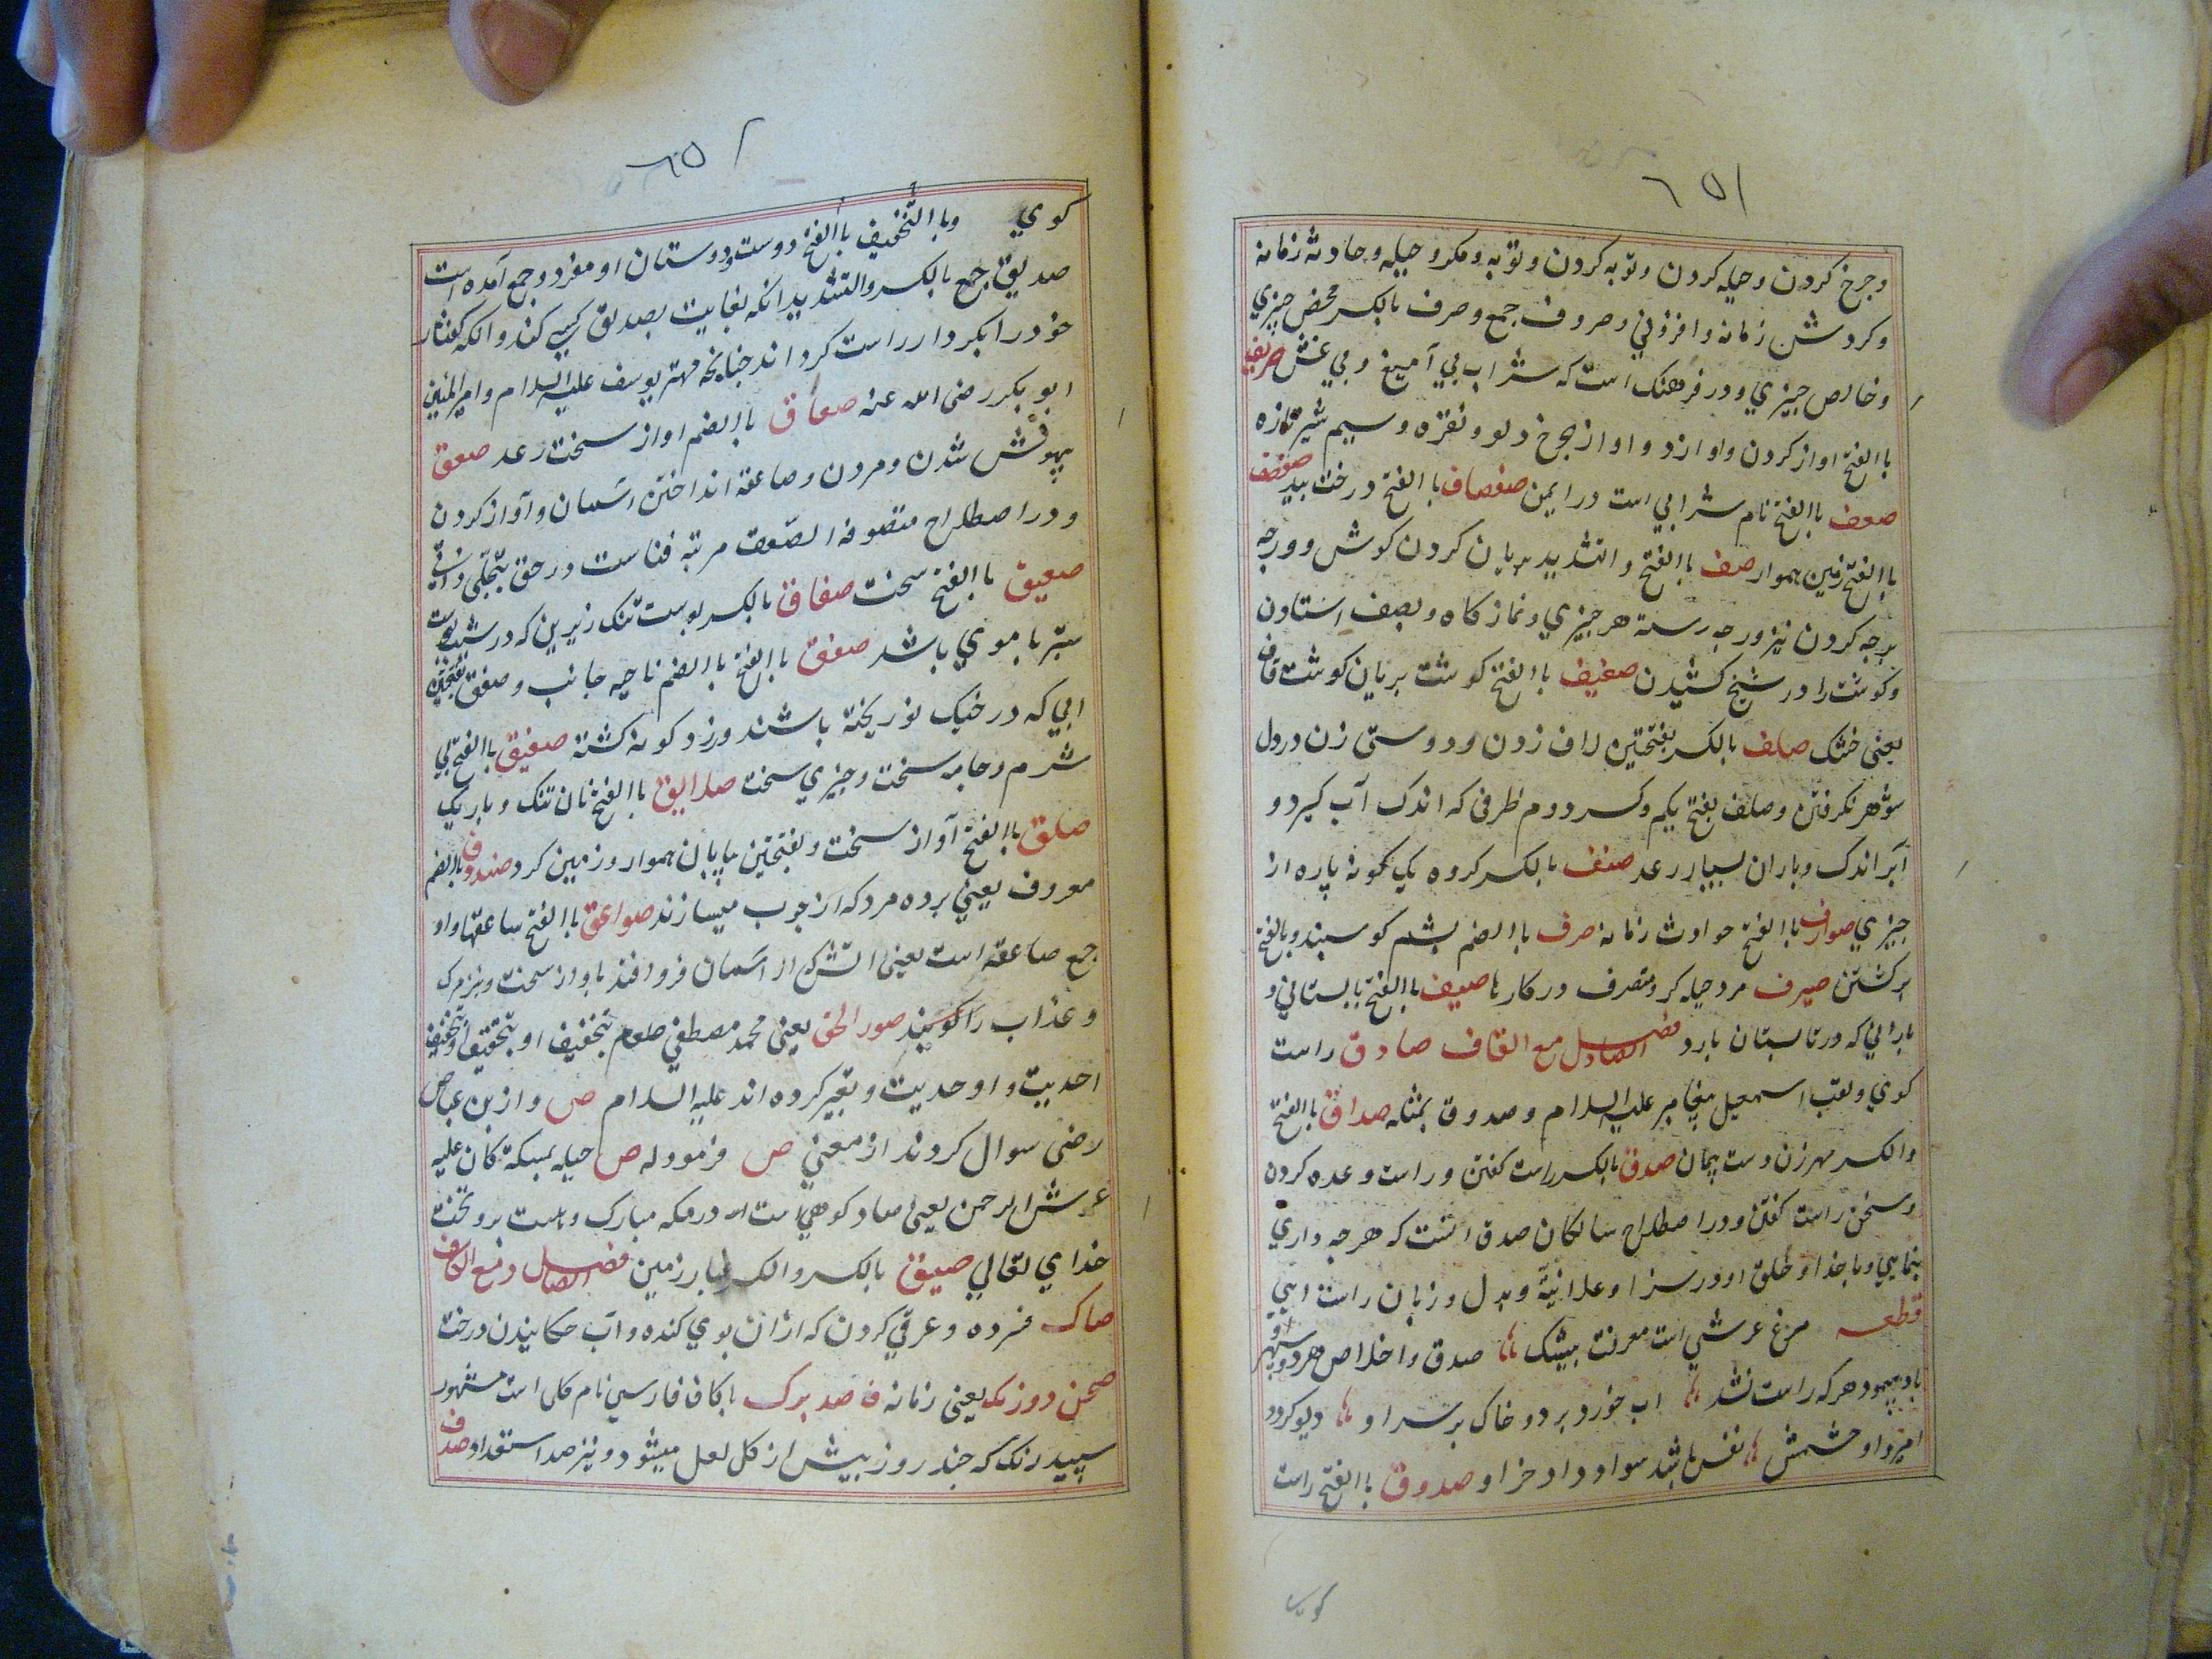 ٦٥١
وجرخ کردن وحیله کردن وتوبه کردن وتوبه ومکر وحیله وحادثه زمانه
وکردش زمانه وافزونی وصروف جمع وصرف بالکسر محض چیزی
وخالص چیزی ودر فرهنک است که شراب بی آمیغ وبی غش صریف
باالفتح اواز کردن واو ازدو اواز بچرخ دلو ونقره وسیم شیر تازه
صعف باالفتح نام شرابی است در ایمن صفصاف باالفتح درخت بید صفصف
باالفتح زمین هموار صف باالفتح والتشدید بریان کردن کوش وورجه
برجه کردن نیز ورجه رسته هر چیزی ونماز کاه وبصف استادن
وکوشت را در سیخ کشیدن صفیف باالفتح کوشت بریان کوشت قاق
یعنی خشک صلف بالکسر بفتحتین لاف زدن ودوستی زن در دل
شوهر نکرفتن وصلف بفتح یکم وکسر دوم ظرفی که اندک آب کیرد و
ابر اندک وباران بسیار رعد صنف بالکسر کروه یک کونه پاره از
چیزی صوارف باالفتح حوادث زمانه صوف باالضم پشم کوسپند وبالفتح
برکشتن صیرف مرد حیله کر ومتصرف در کارها صیف باالفتح تابستانی و
بارانی که در تابستان بارد فصل الصاد مع القاف صادق راست
کوی ولقب اسمعیل پیغامبر علیه السلام وصدوق بمثله صداق باالفتح
والکسر مهر زن وست پیمان صدق بالکسر راست کفتن وراست وعده کردن
وسخن راست کفتن ودر اصطلاح سالکان صدق انست که هر چه داری
بنمایی وبا خدا وخلق او در سرا وعلانیة وبدل وزبان راست ایی
قطعه مرغ عرشی است معرفت بیشک صدق واخلاص هر دو
باد پیمود هر که راست نشد اب خورد برد وخاک بر سر او دیو کردد
امیر او خشمش نفس باشد سواد داد خزاو صدوق باالفتح راست
کوی
٦٥٢
کوی وبا التخفیف باالفتح دوست ودوستان او مفرد وجمع آمده است
صدیق جمع بالکسر والتشدید انکه بغایت بصدیق کسی کند وانکه کفتار
خود را بکردار راست کرداند چنانچه مهتر یوسف علیه السلام وامیر المومنین
ابو بکر رضی الله عنه صعاق باالضم اواز سخت رعد صعق
بیهوش شدن ومردن وصاعقه انداختن اسمان وآواز کردن
ودر اصطلاح متصوفه الصعق مرتبه فناست در حق بتجلی ذاتی
صعیق باالفتح سخت صفاق بالکسر پوست تنک زیرین که در شیب پوست
ستبر با موی باشد صفق باالفتح باالضم ناحیه جانب وصفق بفتحتین
ابی که در خیک نو ریخته باشند وزرد کونه کشته صفیق باالفتح بی
شرم وجامه سخت وچیزی سخت صلایق باالفتح نان تنک وباریک
صلق باالفتح آواز سخت وبفتحتین بیابان هموار وزمین کرد صندوق باالضم
معروف یعنی برده مرد که از چوب میسازند صواعق باالفتح ساعقها واو
جمع صاعقه است یعنی اتش که از اسمان فرو افتد با واز سخت ونیز مرک
وعذاب را کویند صور الحق یعنی محمد مصطفی صلعم بتخفیف او بتحقیق وتخفیف
احدیت واوحدیت وتعبیر کرده اند علیه السلام ص واز بن عباس
رضی سوال کردند از معنی ص فرمود له ص حیله بمکة کان علیه
عرش الرحمن یعنی صاد کوهی است در مکه مبارک وهست برو تخت
خدای تعالی صیق بالکسر والک غبار زمین فصل الصاد مع الکاف
صاک فسرده وعرقی کردن که از ان بوی کنده واب چکانیدن درخت
صحن دوزنک یعنی زمانه صد برک با کاف فارسی نام کلی است مشهور
سپید رنک که چند روز پیش از کل لعل میشود ونیز صد استعداد صدف